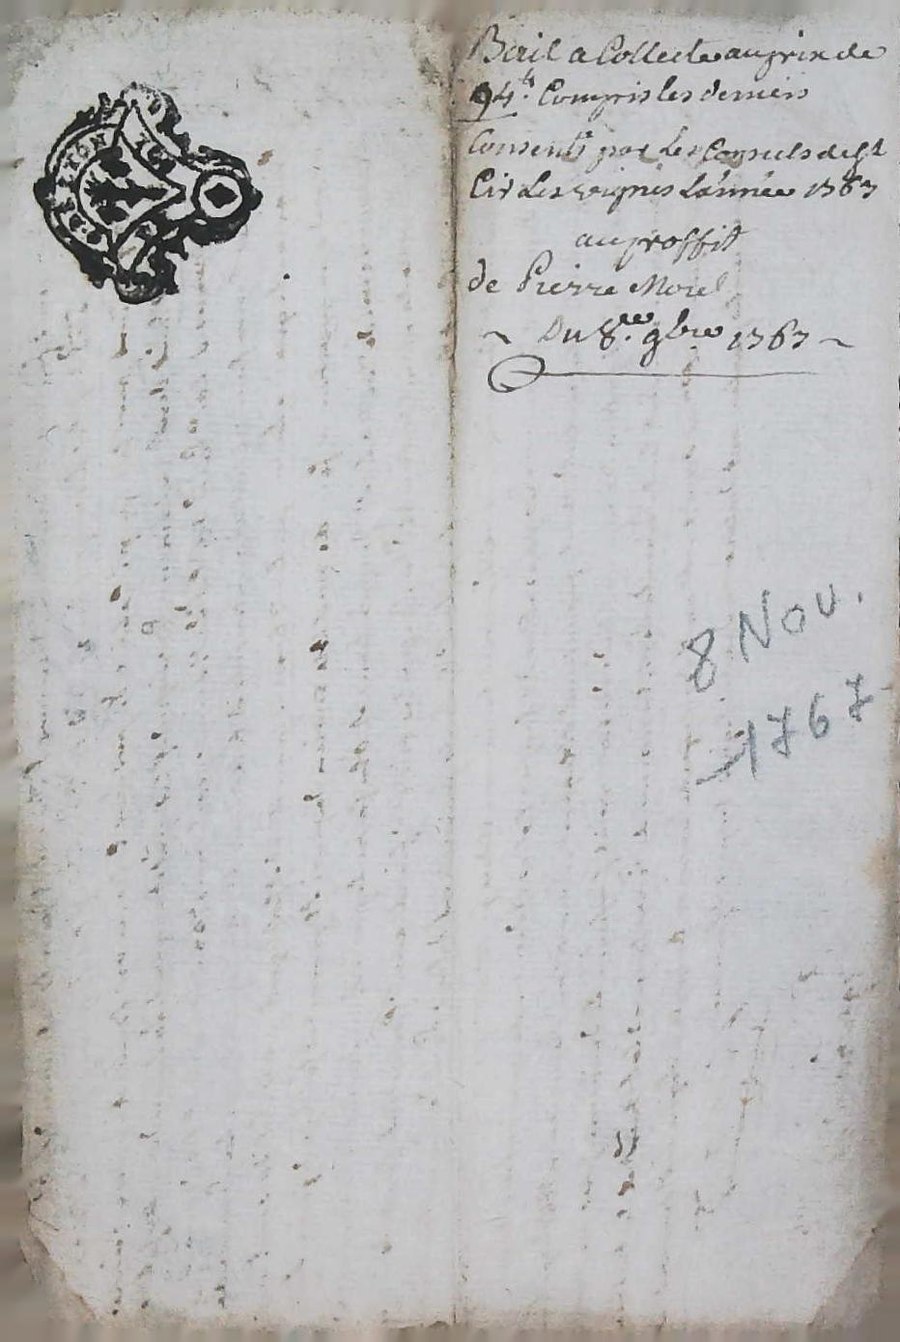 Bail a Collecte au prix de
94 lt. Compris les deniers
Consenti par les Consuls de St
Cir Les vignes L'année 1767
au proffit
de Pierre Morel
~ Du 8.e 9bre 1767 ~
8 Nov.
1767